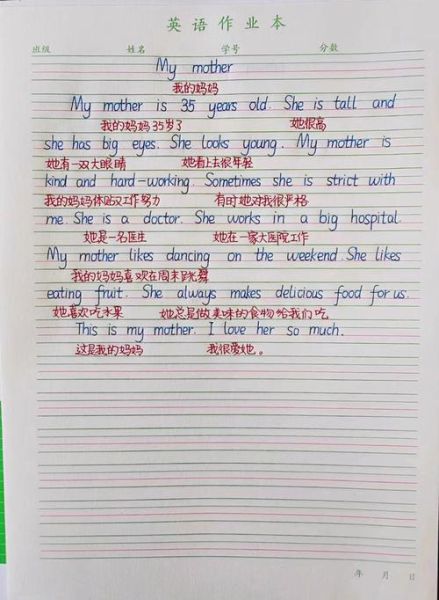 英语作业本
班级 姓名 学号 分数
My mother
我的妈妈
My mother is 35 years old. She is tall and
我的妈妈35岁了 她很高
she has big eyes. She looks young. My mother is
她有一双大眼睛 她看上去很年轻
kind and hard-working. Sometimes she is strict with
我的妈妈体贴又工作努力 有时她对我很严格
me. She is a doctor. She works in a big hospital.
她是一名医生 她在一家大医院工作
My mother likes dancing on the weekend. She likes
我的妈妈喜欢在周末跳舞
eating fruit. She always makes delicious food for us.
她喜欢吃水果 她总是做美味的食物给我们吃
This is my mother. I love her so much.
这是我的妈妈 我很爱她。
年 月 日